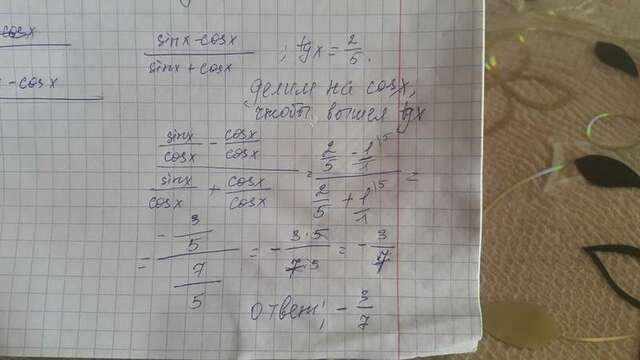 cosx
- cosx
sinx - cosx / sinx + cosx ; tgx = 2/5.
делим на cosx,
чтобы вышел tgx
(sinx/cosx - cosx/cosx) / (sinx/cosx + cosx/cosx) = (2/5 - 1/1 \5) / (2/5 + 1/1 \5) =
= (-3/5) / (7/5) = - 3·5 / 7·5 = - 3/7
ответ: - 3/7